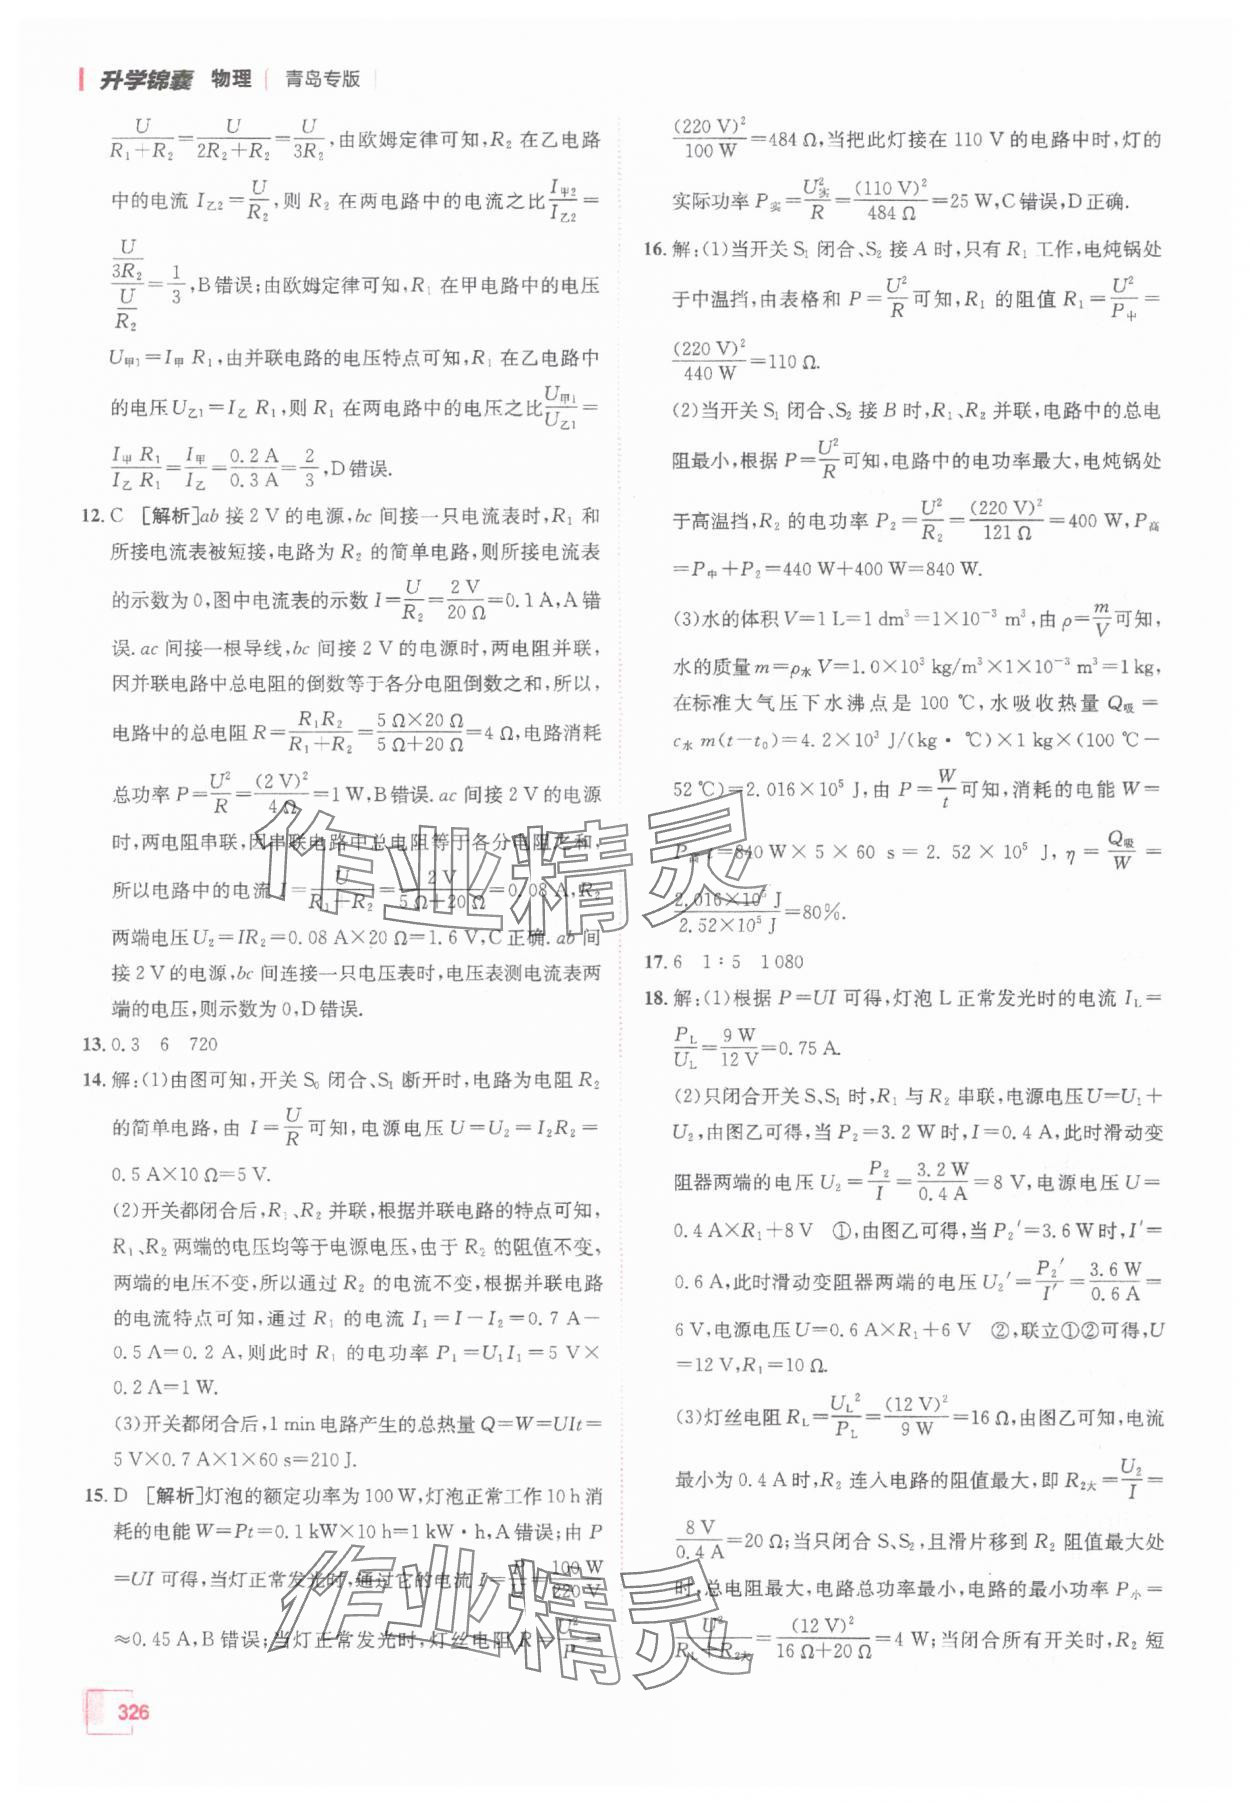 升学锦囊 物理 青岛专版
U/(R₁+R₂)=U/(2R₂+R₂)=U/(3R₂),由欧姆定律可知,R₂ 在乙电路
中的电流 I乙₂=U/R₂,则 R₂ 在两电路中的电流之比 I甲₂/I乙₂=
(U/3R₂)/(U/R₂)=1/3,B错误;由欧姆定律可知,R₁ 在甲电路中的电压
U甲₁=I甲 R₁,由并联电路的电压特点可知,R₁ 在乙电路中
的电压U乙₁=I乙 R₁,则 R₁ 在两电路中的电压之比 U甲₁/U乙₁=
I甲 R₁/I乙 R₁=I甲/I乙=0.2 A/0.3 A=2/3,D错误.
12. C [解析]ab 接 2 V 的电源,bc 间接一只电流表时,R₁ 和
所接电流表被短接,电路为 R₂ 的简单电路,则所接电流表
的示数为0,图中电流表的示数 I=U/R₂=2 V/20 Ω=0.1 A,A错
误.ac 间接一根导线,bc 间接 2 V 的电源时,两电阻并联,
因并联电路中总电阻的倒数等于各分电阻倒数之和,所以,
电路中的总电阻 R=R₁R₂/(R₁+R₂)=(5 Ω×20 Ω)/(5 Ω+20 Ω)=4 Ω,电路消耗
总功率 P=U²/R=(2 V)²/4 Ω=1 W,B错误.ac 间接 2 V 的电源
时,两电阻串联,因串联电路中总电阻等于各分电阻之和,
所以电路中的电流 I=U/(R₁+R₂)=2 V/(5 Ω+20 Ω)=0.08 A,R₂
两端电压U₂=IR₂=0.08 A×20 Ω=1.6 V,C正确.ab 间
接 2 V 的电源,bc 间连接一只电压表时,电压表测电流表两
端的电压,则示数为0,D错误.
13. 0.3 6 720
14. 解:(1)由图可知,开关 S₀ 闭合、S₁ 断开时,电路为电阻 R₂
的简单电路,由 I=U/R 可知,电源电压 U=U₂=I₂R₂=
0.5 A×10 Ω=5 V.
(2)开关都闭合后,R₁、R₂ 并联,根据并联电路的特点可知,
R₁、R₂ 两端的电压均等于电源电压,由于 R₂ 的阻值不变,
两端的电压不变,所以通过 R₂ 的电流不变,根据并联电路
的电流特点可知,通过 R₁ 的电流 I₁=I-I₂=0.7 A-
0.5 A=0.2 A,则此时 R₁ 的电功率 P₁=U₁I₁=5 V×
0.2 A=1 W.
(3)开关都闭合后,1 min 电路产生的总热量 Q=W=UIt=
5 V×0.7 A×1×60 s=210 J.
15. D [解析]灯泡的额定功率为 100 W,灯泡正常工作10 h 消
耗的电能 W=Pt=0.1 kW×10 h=1 kW·h,A错误;由 P
=UI 可得,当灯正常发光时,通过它的电流 I=P/U=100 W/220 V
≈0.45 A,B错误;当灯正常发光时,灯丝电阻 R=U²/P=
(220 V)²/100 W=484 Ω,当把此灯接在 110 V 的电路中时,灯的
实际功率 P实=U实²/R=(110 V)²/484 Ω=25 W,C错误,D正确.
16. 解:(1)当开关 S₁ 闭合、S₂ 接 A 时,只有 R₁ 工作,电炖锅处
于中温挡,由表格和 P=U²/R 可知,R₁ 的阻值 R₁=U²/P中=
(220 V)²/440 W=110 Ω.
(2)当开关 S₁ 闭合、S₂ 接 B 时,R₁、R₂ 并联,电路中的总电
阻最小,根据 P=U²/R 可知,电路中的电功率最大,电炖锅处
于高温挡,R₂ 的电功率 P₂=U²/R₂=(220 V)²/121 Ω=400 W,P高
=P中+P₂=440 W+400 W=840 W.
(3)水的体积 V=1 L=1 dm³=1×10⁻³ m³,由 ρ=m/V 可知,
水的质量 m=ρ水 V=1.0×10³ kg/m³×1×10⁻³ m³=1 kg,
在标准大气压下水沸点是 100 ℃,水吸收热量 Q吸=
c水 m(t-t₀)=4.2×10³ J/(kg·℃)×1 kg×(100 ℃-
52 ℃)=2.016×10⁵ J,由 P=W/t 可知,消耗的电能 W=
P高 t=840 W×5×60 s=2.52×10⁵ J,η=Q吸/W=
2.016×10⁵ J/2.52×10⁵ J=80%.
17. 6 1∶5 1 080
18. 解:(1)根据 P=UI 可得,灯泡 L 正常发光时的电流 I_L=
P_L/U_L=9 W/12 V=0.75 A.
(2)只闭合开关 S、S₁ 时,R₁ 与 R₂ 串联,电源电压U=U₁+
U₂,由图乙可得,当 P₂=3.2 W 时,I=0.4 A,此时滑动变
阻器两端的电压 U₂=P₂/I=3.2 W/0.4 A=8 V,电源电压 U=
0.4 A×R₁+8 V ①,由图乙可得,当 P₂′=3.6 W时,I′=
0.6 A,此时滑动变阻器两端的电压U₂′=P₂′/I′=3.6 W/0.6 A=
6 V,电源电压U=0.6 A×R₁+6 V ②,联立①②可得,U
=12 V,R₁=10 Ω.
(3)灯丝电阻 R_L=U_L²/P_L=(12 V)²/9 W=16 Ω,由图乙可知,电流
最小为 0.4 A 时,R₂ 连入电路的阻值最大,即 R₂大=U₂/I=
8 V/0.4 A=20 Ω;当只闭合 S、S₂,且滑片移到 R₂ 阻值最大处
时,总电阻最大,电路总功率最小,电路的最小功率 P小=
U²/(R_L+R₂大)=(12 V)²/(16 Ω+20 Ω)=4 W;当闭合所有开关时,R₂ 短
作业精灵
作业精灵
326